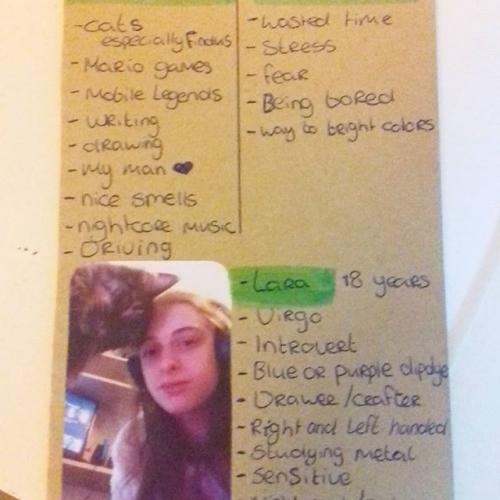 -cats
especially Findus
- Mario games
- Mobile Legends
- writing
- drawing
- My man ♥
- nice smells
- nightcore music
- Driving
- wasted time
- Stress
- fear
- Being bored
- way to bright colors
- Lara 18 years
- Virgo
- Introvert
- Blue or purple dipdye
- Drawer/crafter
- Right and Left handed
- Studying metal
- Sensitive